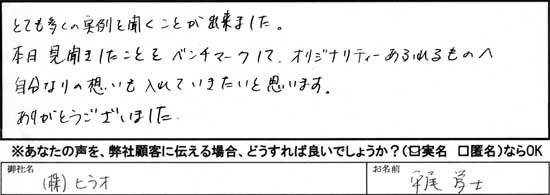 とても多くの実例を聞くことが出来ました。
本日見聞きしたことをベンチマークして、オリジナリティーあふれるものへ
自分なりの想いも入れていきたいと思います。
ありがとうございました。
※あなたの声を、弊社顧客に伝える場合、どうすれば良いでしょうか?(☑実名 □匿名)ならOK
御社名
お名前
(株)ヒラオ
平尾 士